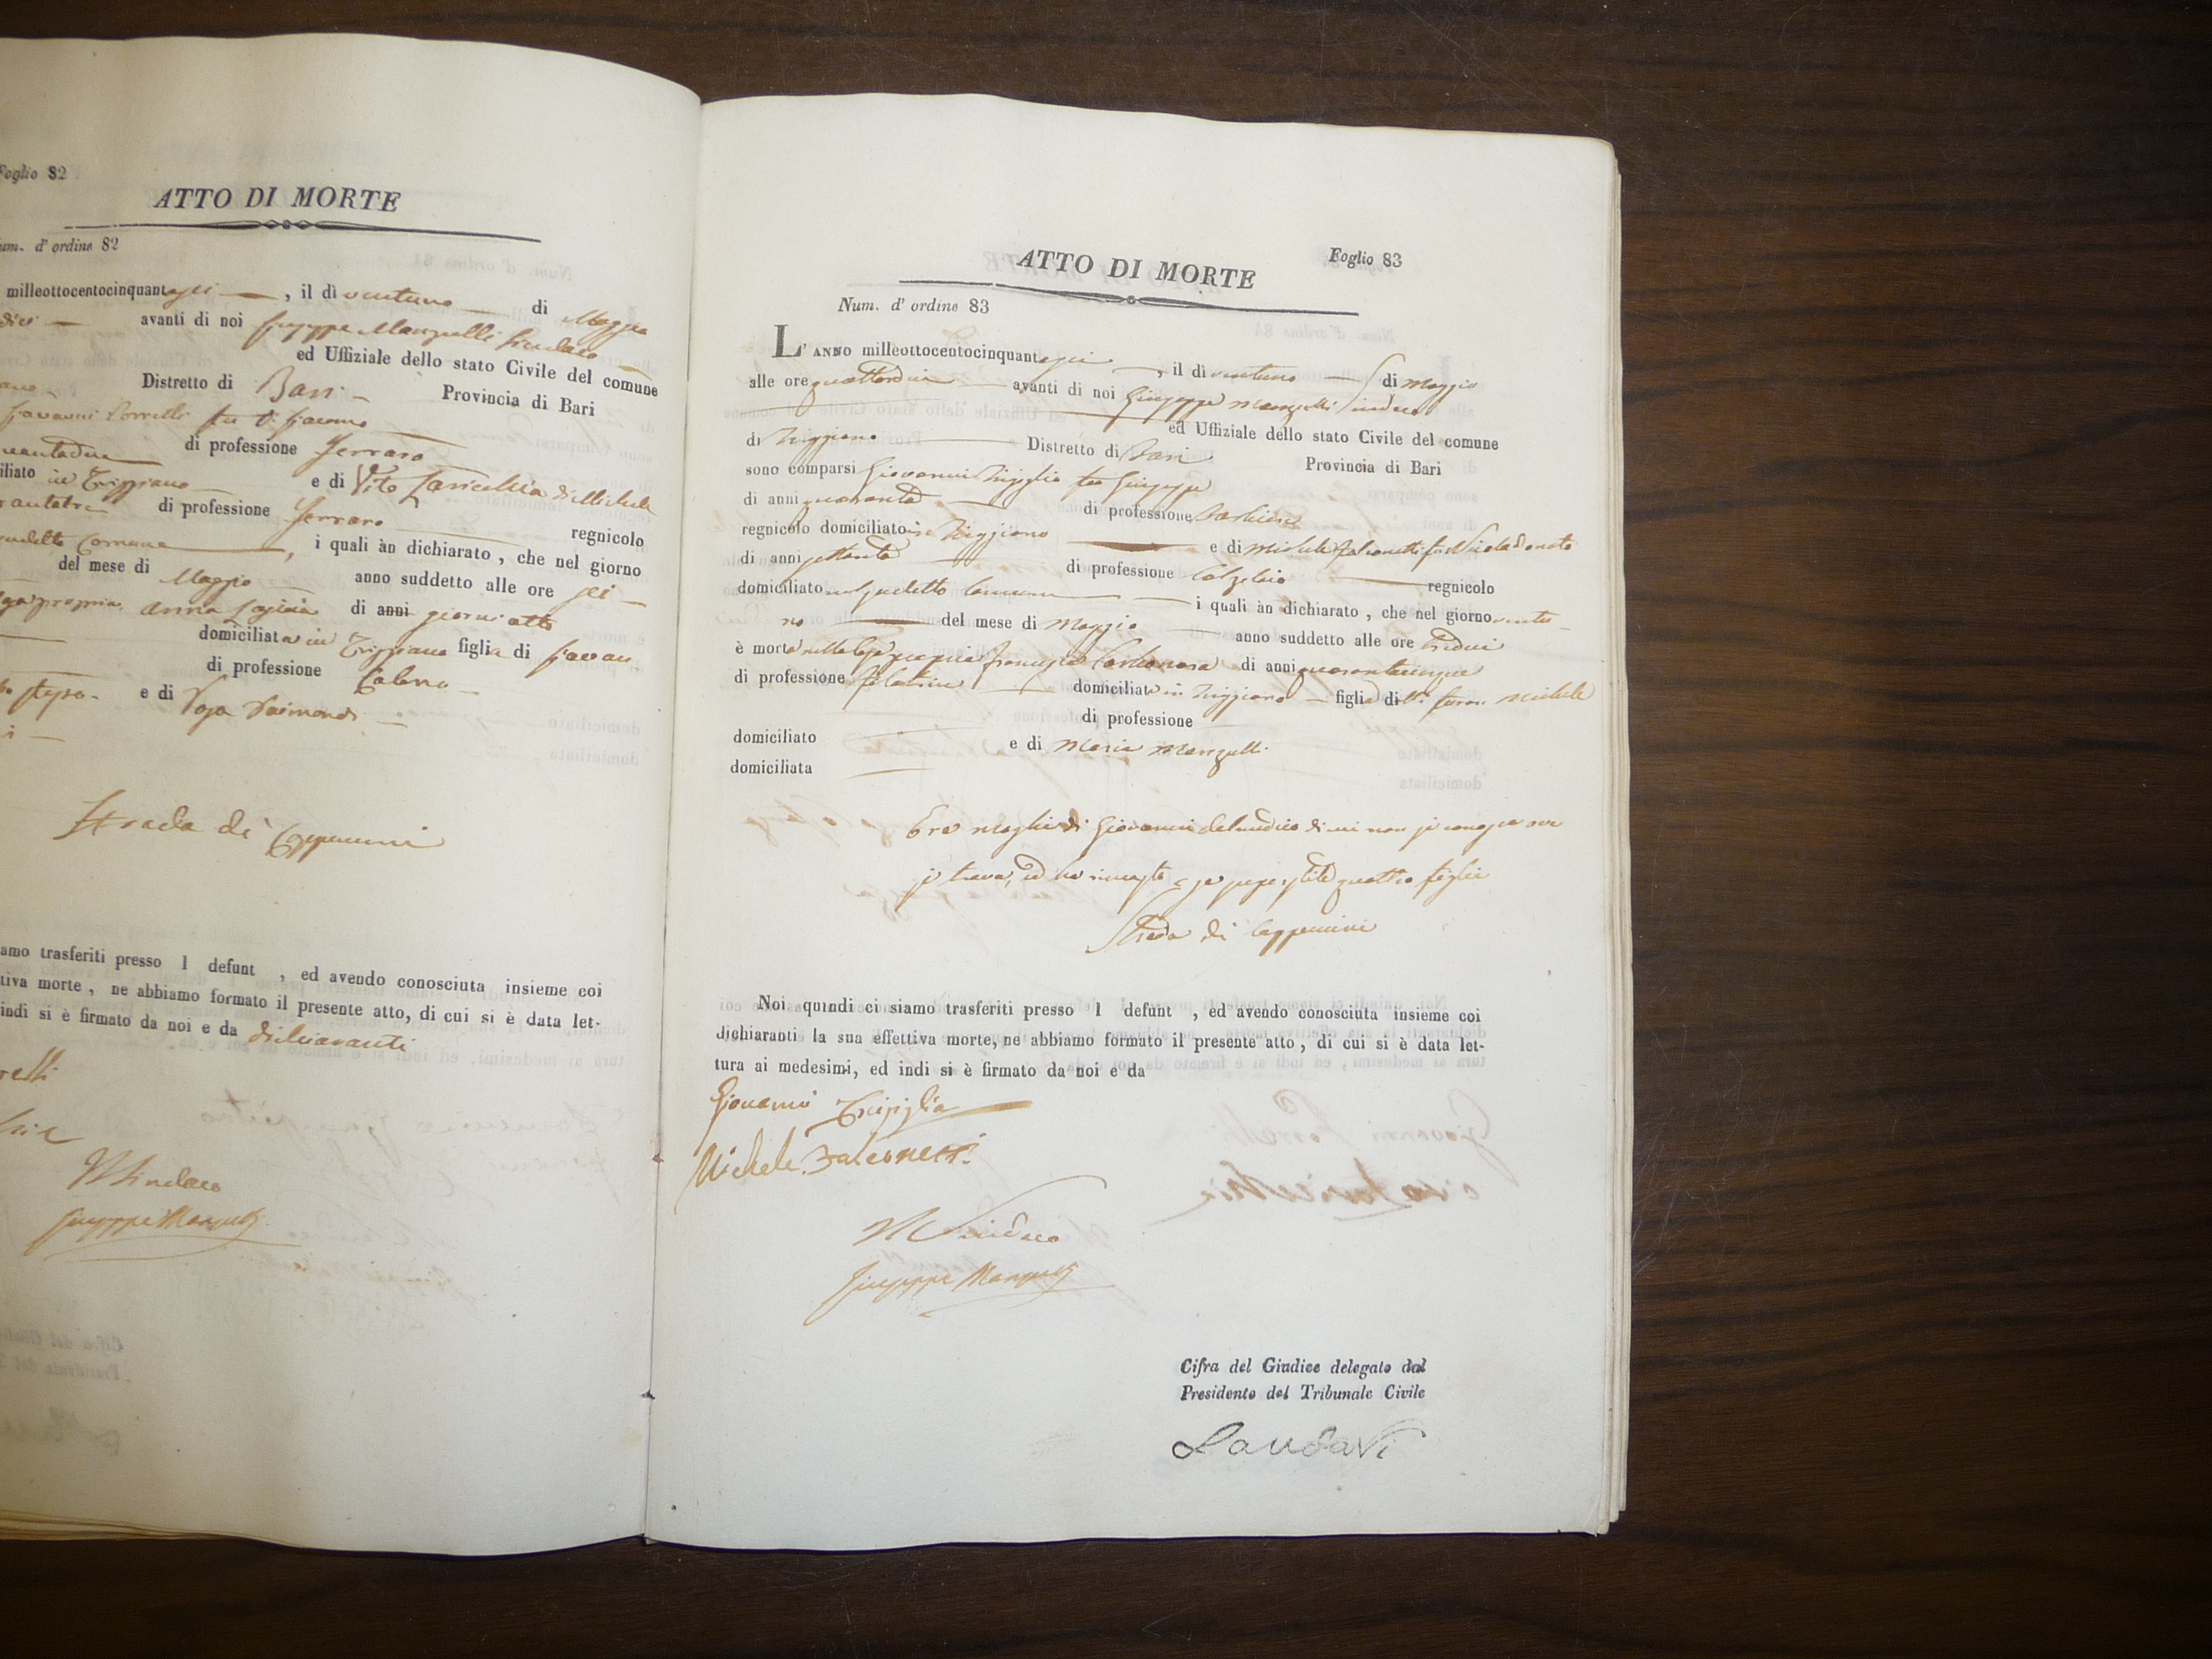 Foglio 82
ATTO DI MORTE
um. d' ordine 82
milleottocentocinquantasei , il dì ventuno di Maggio
dici avanti di noi Giuseppe Manzulli Sindaco
ed Uffiziale dello stato Civile del comune
Distretto di Bari Provincia di Bari
Giovanni Porrelli fu
di professione Ferraro
iliato in Triggiano e di Vito Laricchia di Michele
rantatre di professione Ferraro regnicolo
suddetto Comune , i quali àn dichiarato , che nel giorno
del mese di Maggio anno suddetto alle ore sei
propria Anna di anni giorni otto
domiciliata in Triggiano figlia di Giovan
di professione
stesso e di Rosa Raimondi
Strada di Cappuccini
amo trasferiti presso l defunt , ed avendo conosciuta insieme coi
tiva morte , ne abbiamo formato il presente atto, di cui si è data let-
indi si è firmato da noi e da dichiaranti
relli
Il Sindaco
Giuseppe Manzulli
Foglio 83
ATTO DI MORTE
Num. d' ordine 83
L' ANNO milleottocentocinquantasei , il dì ventuno di Maggio
alle ore quattordici avanti di noi Giuseppe Manzulli Sindaco
ed Uffiziale dello stato Civile del comune
di Triggiano Distretto di Bari Provincia di Bari
sono comparsi Giovanni Trisiglia fu Giuseppe
di anni quaranta di professione Barbiere
regnicolo domiciliato in Triggiano e di Michele Falconetti fu Nicola Donato
di anni settanta di professione Calzolaio regnicolo
domiciliato nel suddetto Comune i quali àn dichiarato , che nel giorno ventu
no del mese di Maggio anno suddetto alle ore tredici
è morta nella casa propria Francesca Carbonara di anni quarantacinque
di professione filatrice domiciliata in Triggiano figlia di furon Michele
di professione
domiciliato e di Maria Manzulli
domiciliata
Era moglie di Giovanni Delmedico di cui non si conosce ove
si trova, ed ha rimasto a se superstiti quattro figli
Strada di Cappuccini
Noi quindi ci siamo trasferiti presso l defunt , ed avendo conosciuta insieme coi
dichiaranti la sua effettiva morte, ne abbiamo formato il presente atto , di cui si è data let-
tura ai medesimi, ed indi si è firmato da noi e da
Giovanni Trisiglia
Michele Falconetti
Il Sindaco
Giuseppe Manzulli
Cifra del Giudice delegato dal
Presidente del Tribunale Civile
Landati